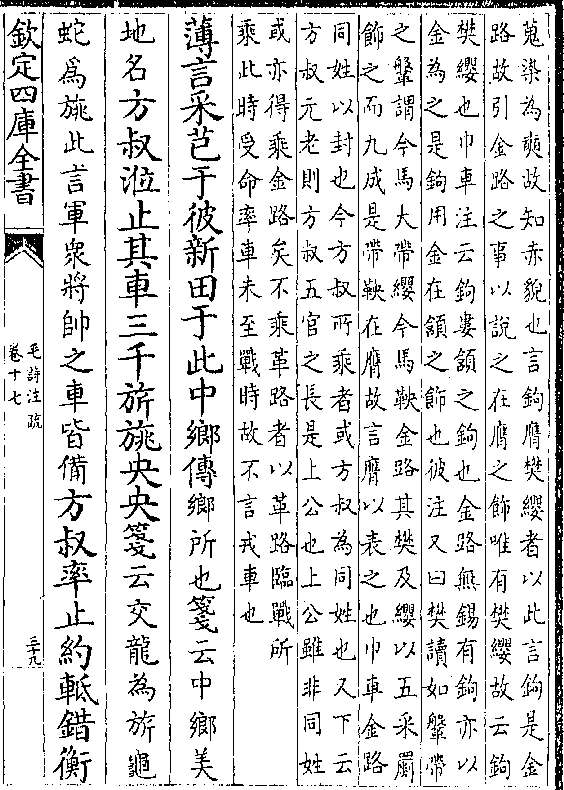 蒐染為奭故知赤貌也言鉤膺樊纓者以此言鉤是金
路故引金路之事以說之在膺之飾唯有樊纓故云鉤
樊纓也巾車注云鉤婁頷之鉤也金路無錫有鉤亦以
金為之是鉤用金在頷之飾也彼注又曰樊讀如鞶帶
之鞶謂今馬大帶纓今馬鞅金路其樊及纓以五采罽
飾之而九成是帶鞅在膺故言膺以表之也巾車金路
同姓以封也今方叔所乘者或方叔為同姓也又下云
方叔元老則方叔五官之長是上公也上公雖非同姓
或亦得乘金路矣不乘革路者以革路臨戰所
乘此時受命率車未至戰時故不言戎車也
薄言采芑于彼新田于此中鄉傳鄉所也箋云中鄉美
地名方叔涖止其車三千旂旐央央箋云交龍為旂龜
蛇為旐此言軍衆將帥之車皆備方叔率止約軧錯衡
欽定四庫全書
毛詩注疏
卷十七
三十九